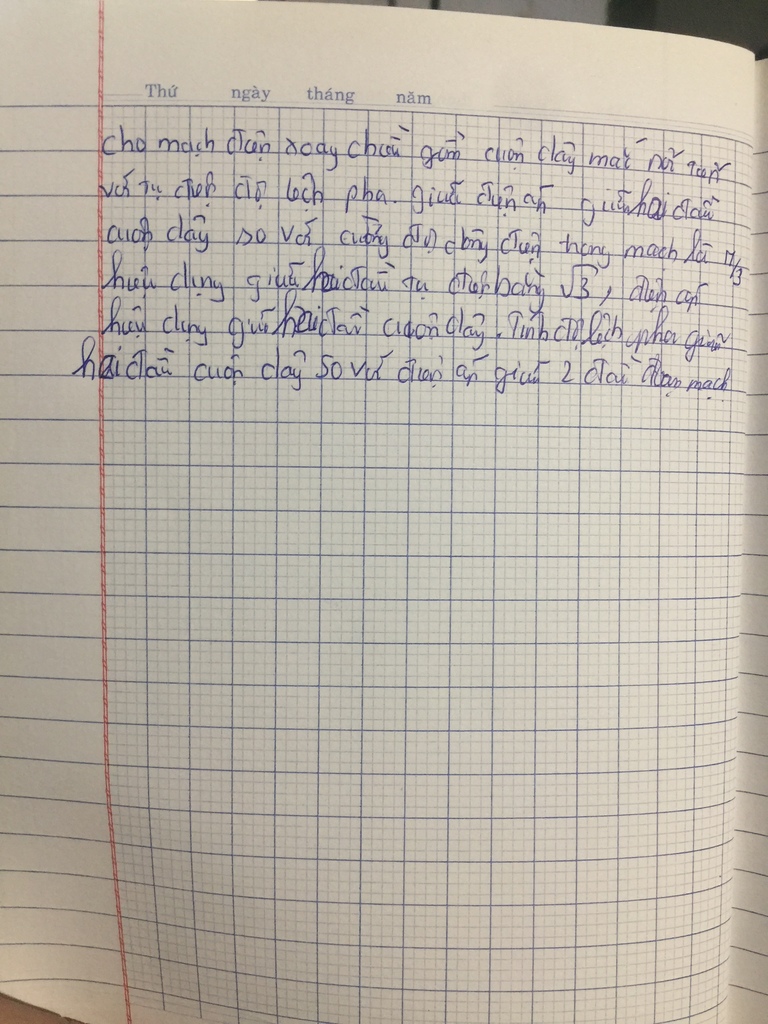 Thứ ngày tháng năm
cho mạch điện xoay chiều gồm cuộn dây mắc nối tiếp
với tụ điện độ lệch pha giữa điện áp giữa hai đầu
cuộn dây so với cường độ dòng điện trong mạch là π/3
hiệu dụng giữa hai đầu tụ điện bằng √3, điện áp
hiệu dụng giữa hai đầu cuộn dây. Tính độ lệch pha giữa
hai đầu cuộn dây so với điện áp giữa 2 đầu đoạn mạch